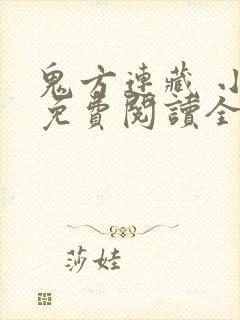 鬼方連藏 小
免費閱讀全
莎娃